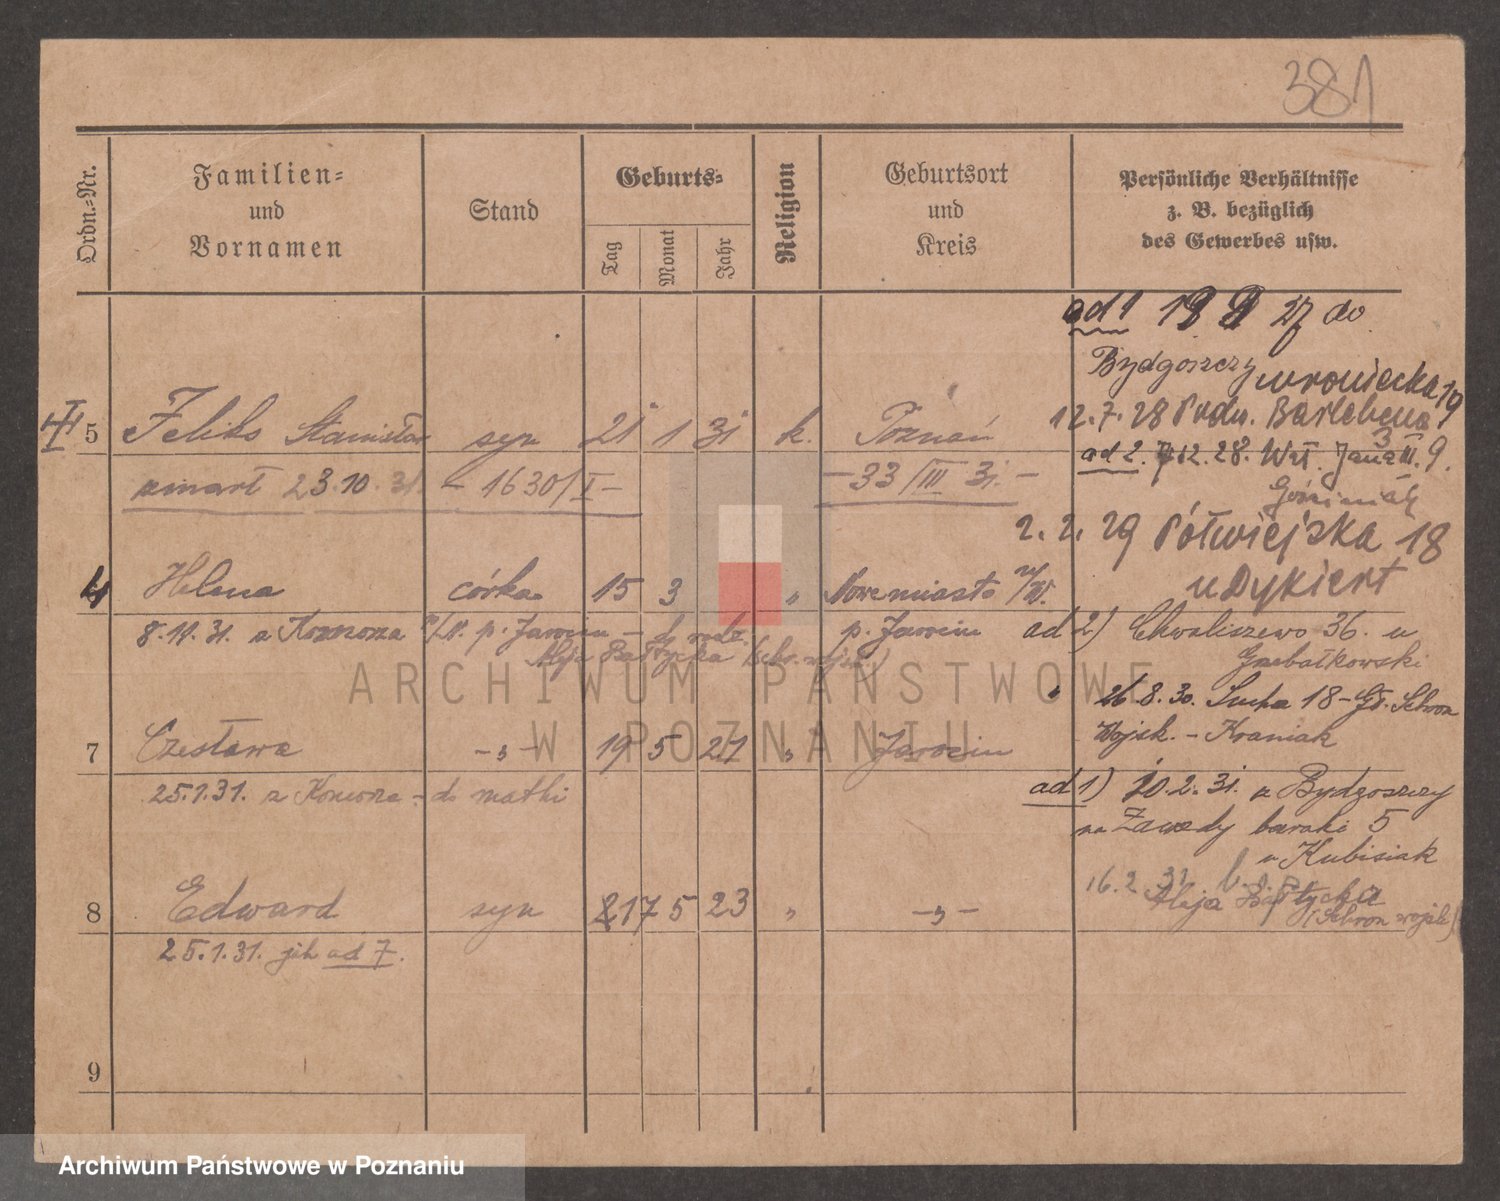 381
Ordn.-Nr.
Familien-
und
Vornamen
Stand
Geburts-
Tag
Monat
Jahr
Religion
Geburtsort
und
Kreis
Persönliche Verhältnisse
z. B. bezüglich
des Gewerbes usw.
ad 1 27 do
Bydgoszczy wroniecka 19
5 Feliks Stanisław syn 21 1 31 k. Poznań
12.7.28 Bartebena
zmarł 23.10.31. – 1630/I – – 33/III 31. –
ad 2. 12.28. Wał. Jana III. 9.
2. 2. 29 Półwiejska 18
u Dykiert
4 Helena córka 15 3 „ Nowemiasto n/W.
8.11.31. z p. Jarocin – p. Jarocin
Aleja Bałtycka
ad 2) Chwaliszewo 36. u
Grebałkowski
26.8.30. Sucha 18 – Schron
Wojsk. – Kraniak
7 Czesława – „ – 19 5 21 „ Jarocin
25.1.31. z – do matki
ad 1) 10.2.31. z Bydgoszczy
na Zawady baraki 5
u Kubisiak
16.2.31.
Aleja Bałtycka
(Schron wojsk)
8 Edward syn 17 5 23 „ – „ –
25.1.31. jak ad 7.
9
ARCHIWUM PAŃSTWOWE
W POZNANIU
Archiwum Państwowe w Poznaniu